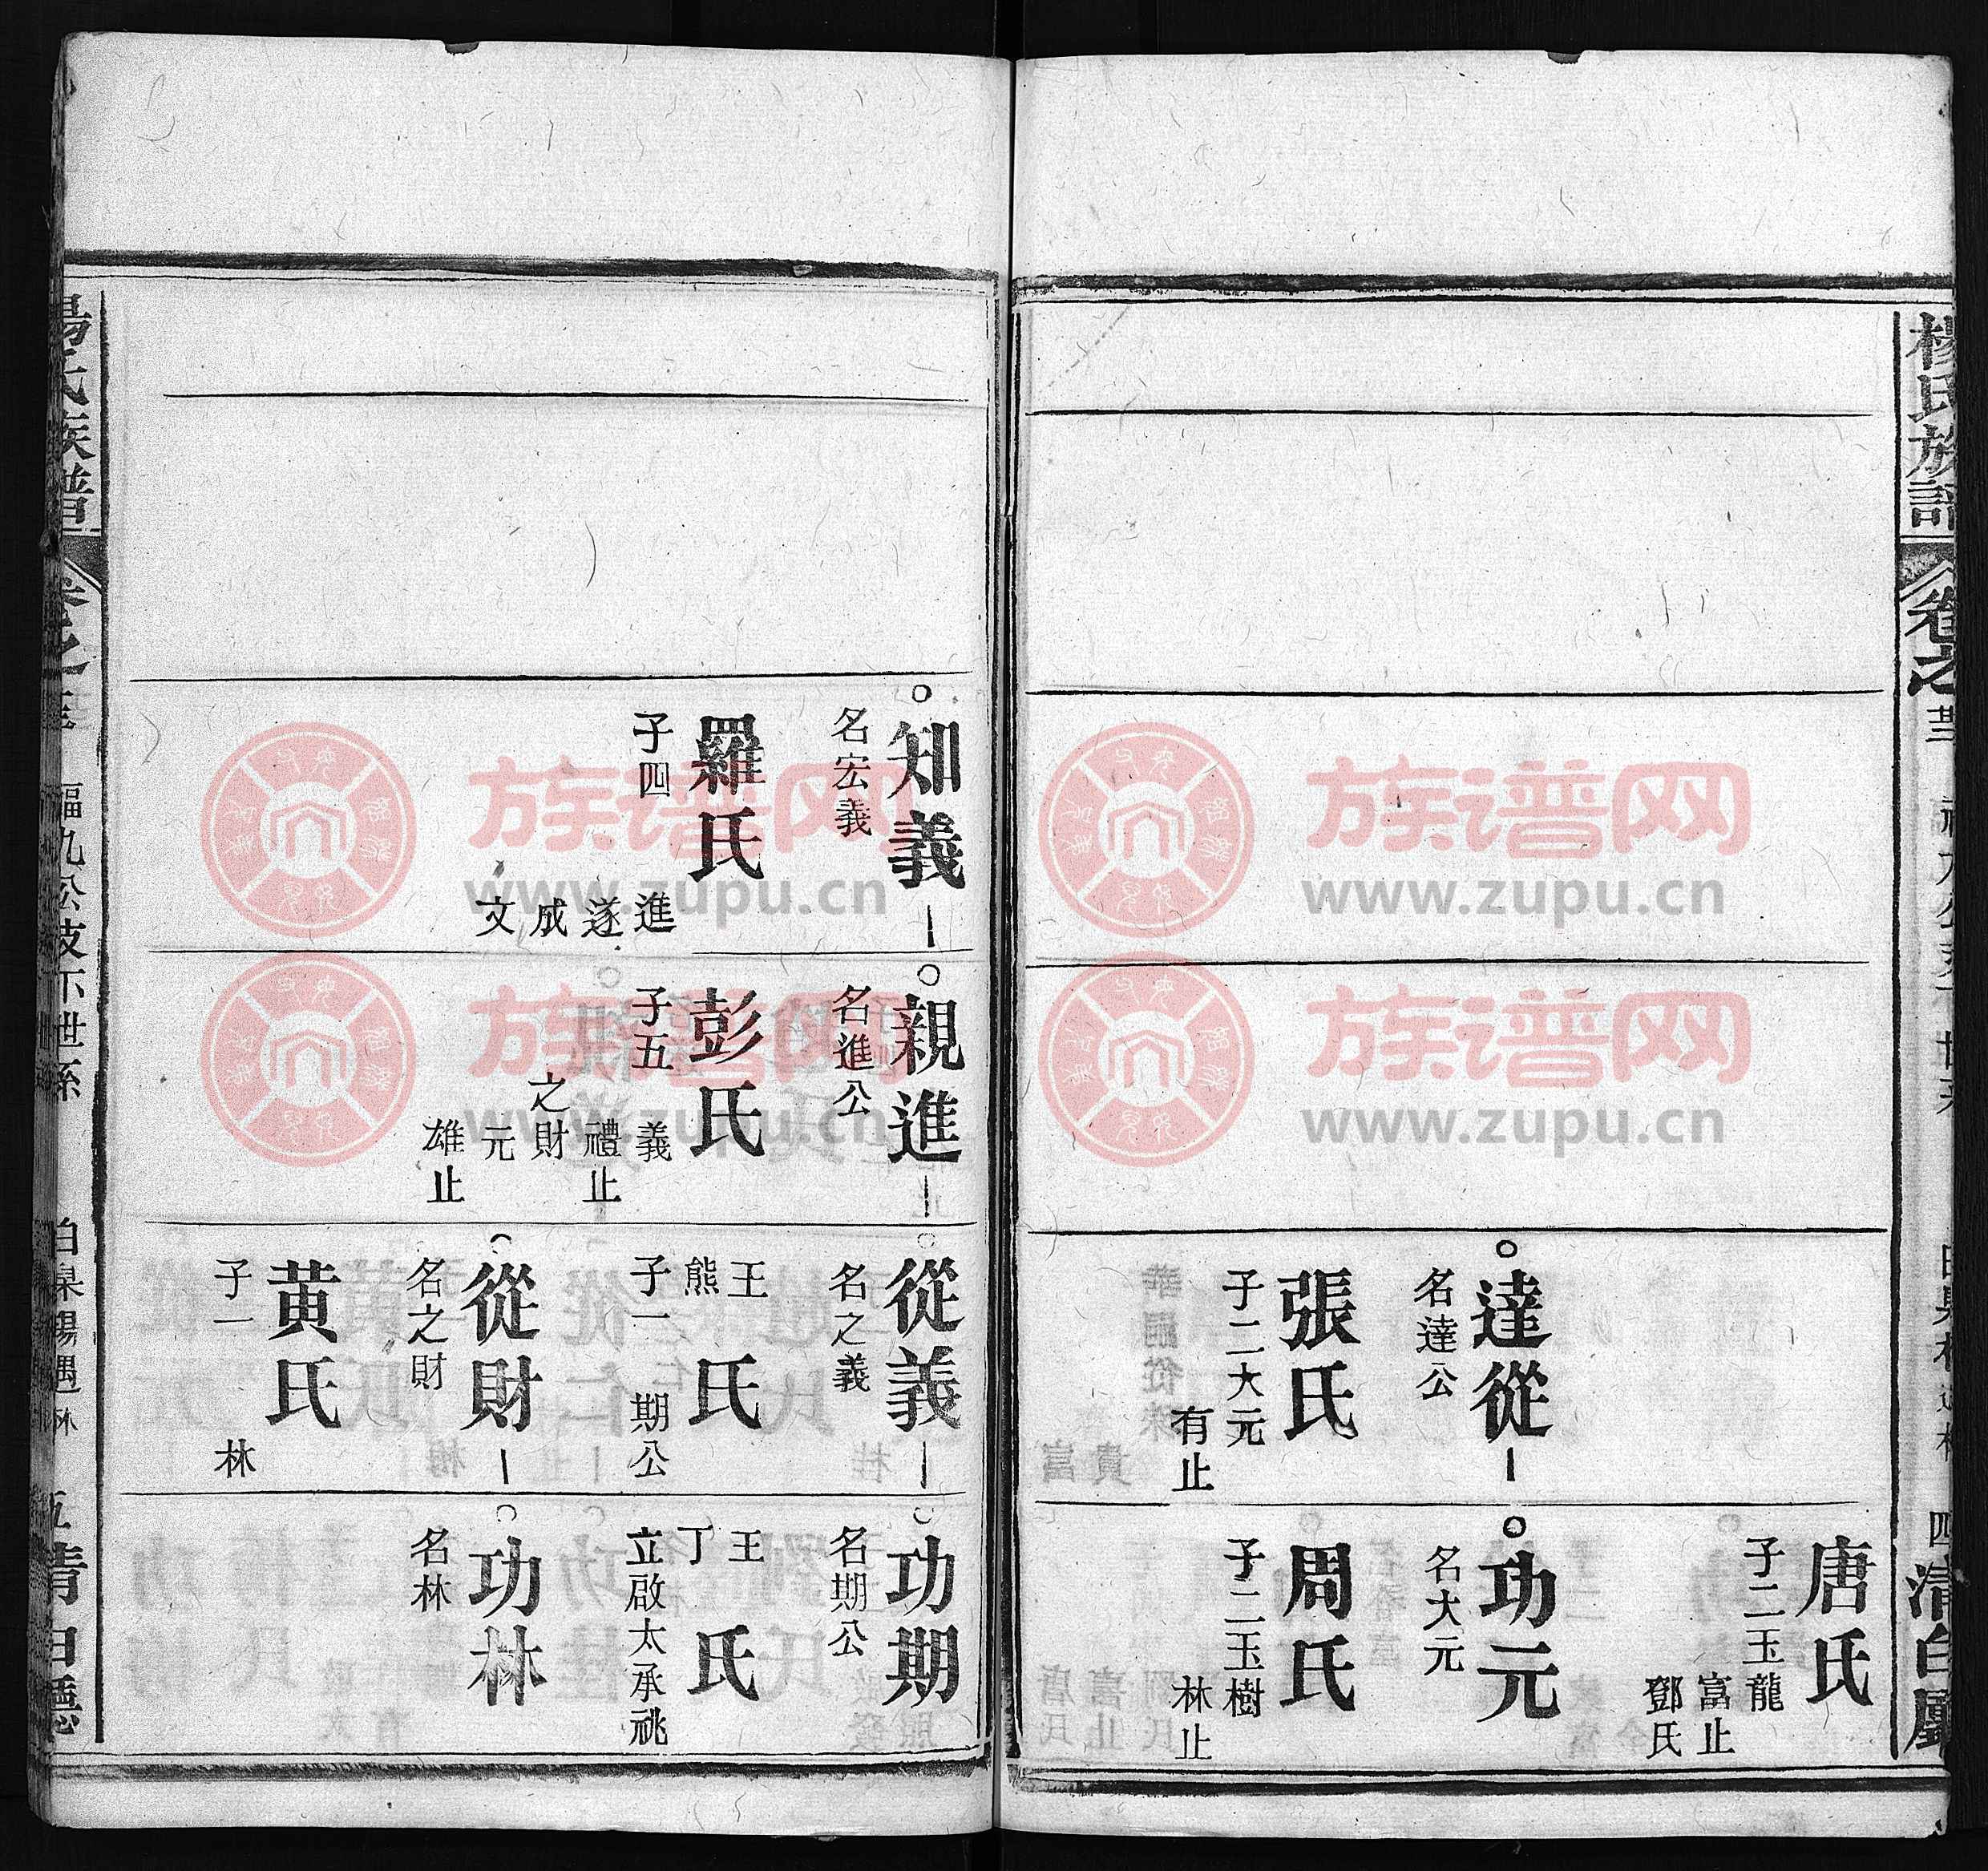 楊氏族譜
卷之
四
清白
唐氏
子二玉龍
富止
鄧氏
達從
名達公
張氏
子二大元
有止
功元
名大元
周氏
子二玉樹
林止
知義
名宏義
羅氏
子四
進
遂
成
文
親進
名進公
彭氏
子五
義
禮止
之財
元
雄止
從義
名之義
王
熊
氏
子一
期公
從財
名之財
黄氏
子一
林
功期
名期公
王
丁
氏
立啟太承祧
功林
名林
楊氏族譜
卷之
福九公支下世系
五
族谱网
www.zupu.cn
族谱网
www.zupu.cn
族谱网
www.zupu.cn
族谱网
www.zupu.cn